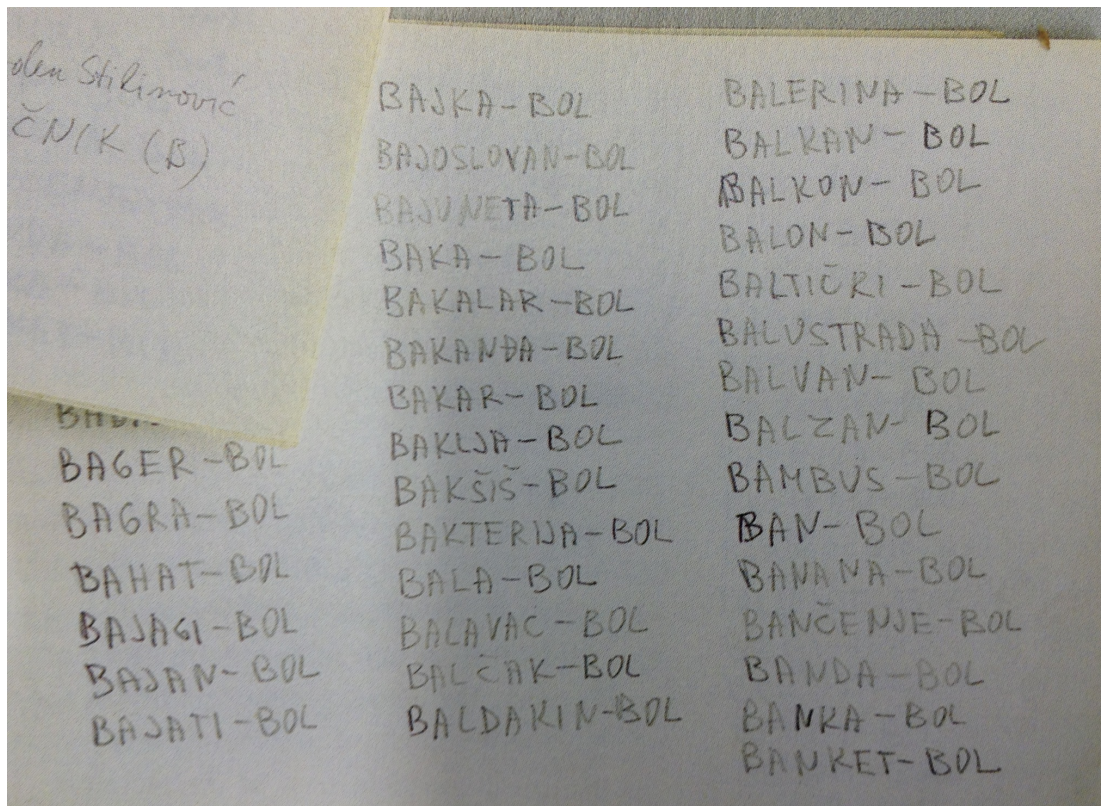 Stilinović
ČNIK (B)
BAGER-BOL
BAGRA-BOL
BAHAT-BOL
BAJAGI-BOL
BAJAN-BOL
BAJATI-BOL
BAJKA-BOL
BAJOSLOVAN-BOL
BAJUNETA-BOL
BAKA-BOL
BAKALAR-BOL
BAKANĐA-BOL
BAKAR-BOL
BAKLJA-BOL
BAKŠIŠ-BOL
BAKTERIJA-BOL
BALA-BOL
BALAVAC-BOL
BALČAK-BOL
BALDAKIN-BOL
BALERINA-BOL
BALKAN-BOL
BALKON-BOL
BALON-BOL
BALTIČKI-BOL
BALUSTRADA-BOL
BALVAN-BOL
BALZAN-BOL
BAMBUS-BOL
BAN-BOL
BANANA-BOL
BANČENJE-BOL
BANDA-BOL
BANKA-BOL
BANKET-BOL